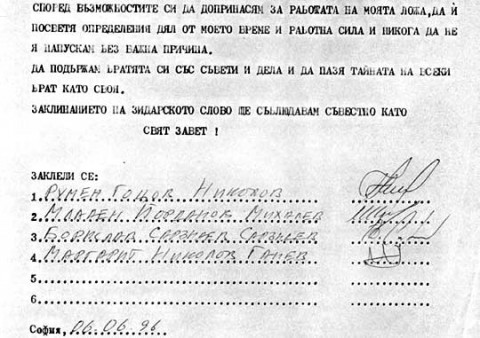 СПОРЕД ВЪЗМОЖНОСТИТЕ СИ ДА ДОПРИНАСЯМ ЗА РАБОТАТА НА МОЯТА ЛОЖА, ДА Й
ПОСВЕТЯ ОПРЕДЕЛЕНИЯ ДЯЛ ОТ МОЕТО ВРЕМЕ И РАБОТНА СИЛА И НИКОГА ДА НЕ
Я НАПУСКАМ БЕЗ ВАЖНА ПРИЧИНА.
ДА ПОДЪРЖАМ БРАТЯТА СИ СЪС СЪВЕТИ И ДЕЛА И ДА ПАЗЯ ТАЙНАТА НА ВСЕКИ
БРАТ КАТО СВОЯ.
ЗАКЛИНАНИЕТО НА ЗИДАРСКОТО СЛОВО ЩЕ СЪБЛЮДАВАМ СЪВЕСТНО КАТО
СВЯТ ЗАВЕТ !
ЗАКЛЕЛИ СЕ:
1. РУМЕН ГОЦОВ НИКОЛОВ
2. МЛАДЕН ЙОРДАНОВ МИХАЛЕВ
3. БОРИСЛАВ САРЪНДЕВ
4. МАРГАРИТ НИКОЛОВ ГАНЕВ
5.
6.
София, 06.06.96